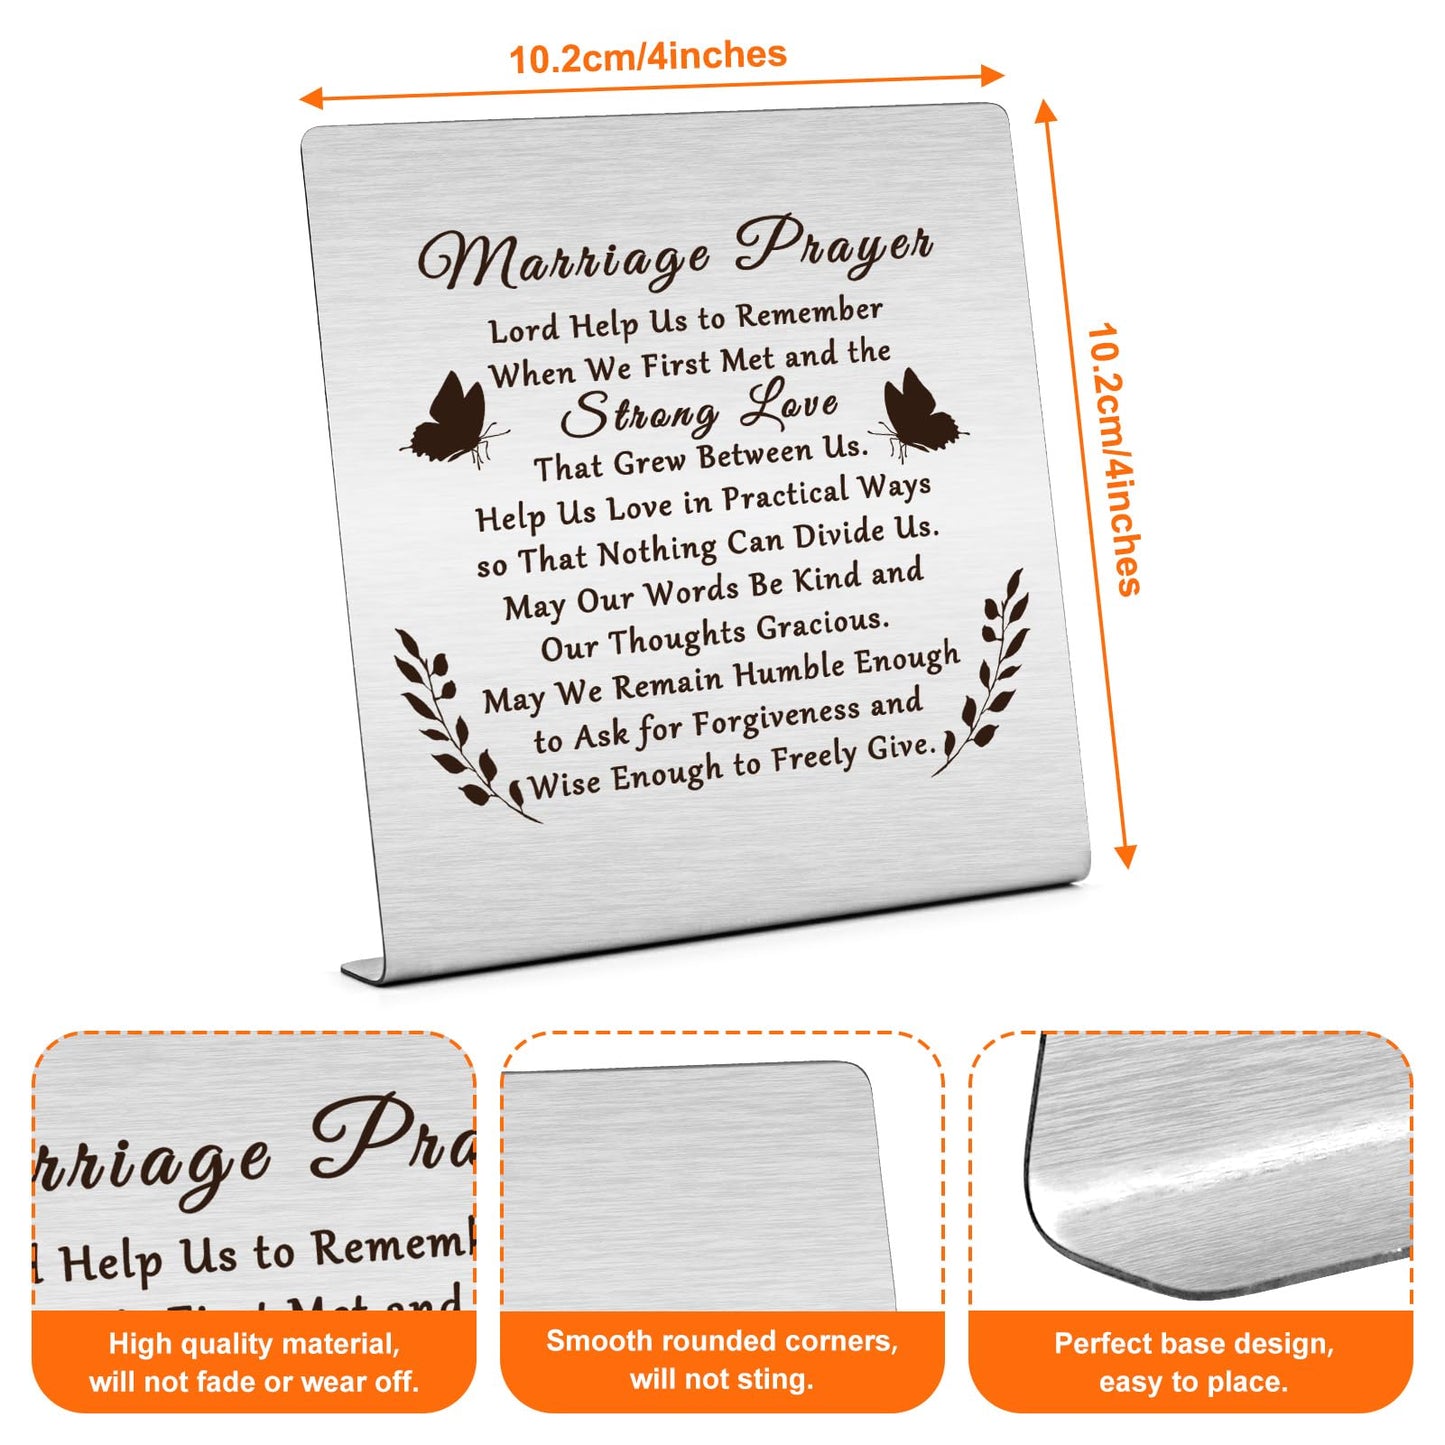 10.2cm/4inches
10.2cm/4inches
Marriage Prayer
Lord Help Us to Remember
When We First Met and the
Strong Love
That Grew Between Us.
Help Us Love in Practical Ways
so That Nothing Can Divide Us.
May Our Words Be Kind and
Our Thoughts Gracious.
May We Remain Humble Enough
to Ask for Forgiveness and
Wise Enough to Freely Give.
rriage Pra
d Help Us to Rememb
First Met and
High quality material,
will not fade or wear off.
Smooth rounded corners,
will not sting.
Perfect base design,
easy to place.